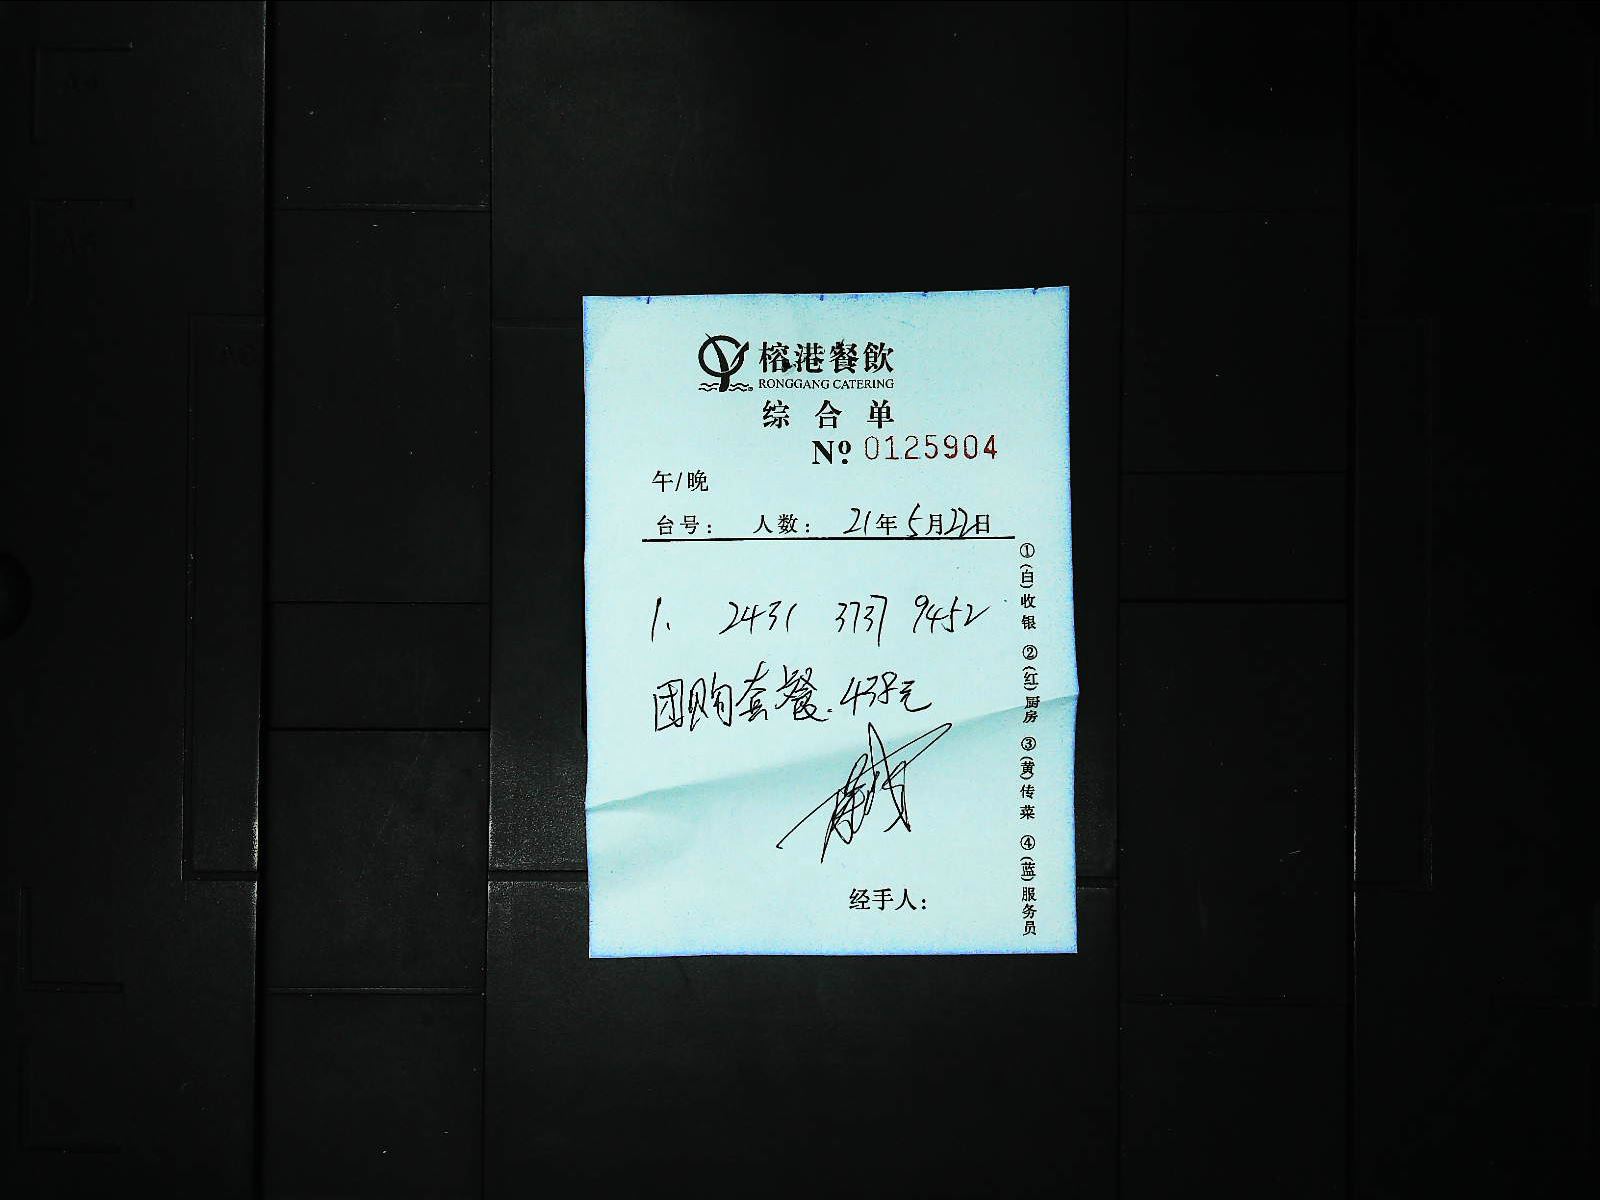 榕港餐飲
RONGGANG CATERING
综合单
Nº 0125904
午/晚
台号： 人数： 21年5月22日
1、 2431 3737 9452
团购套餐.438元
经手人：
①(白)收银 ②(红)厨房 ③(黄)传菜 ④(蓝)服务员